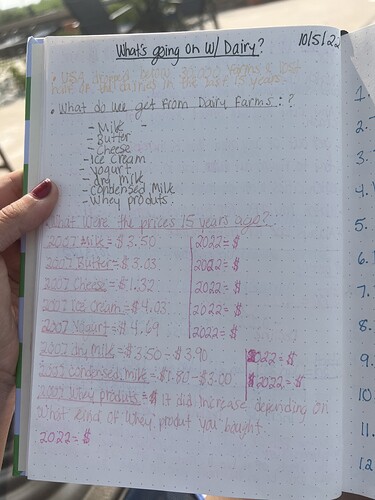 What's going on w/ Dairy?
10/5/22
• USA dropped below 30,000 farms & lost
half of the dairies in the last 15 years.
• What do we get from Dairy Farms: ?
- Milk -
- Butter
- Cheese
- Ice cream
- Yogurt
- dry milk
- condensed Milk
- Whey produts.
What were the prices 15 years ago?
2007 Milk = $3.50 2022= $
2007 Butter = $3.03 2022= $
2007 Cheese = $1.32 2022= $
2007 Ice cream = $4.03 2022= $
2007 Yogurt = $4.69 2022= $
2007 dry Milk = $3.50 - $3.90 2022= $
2007 Condensed Milk = $1.80 - $3.00 $2022= $
2007 Whey produts = $ It did increase depending on
what kind of Whey produt you bought.
2022= $
1.
2.
3.
4.
5.
6.
7.
8.
9.
10
11.
12